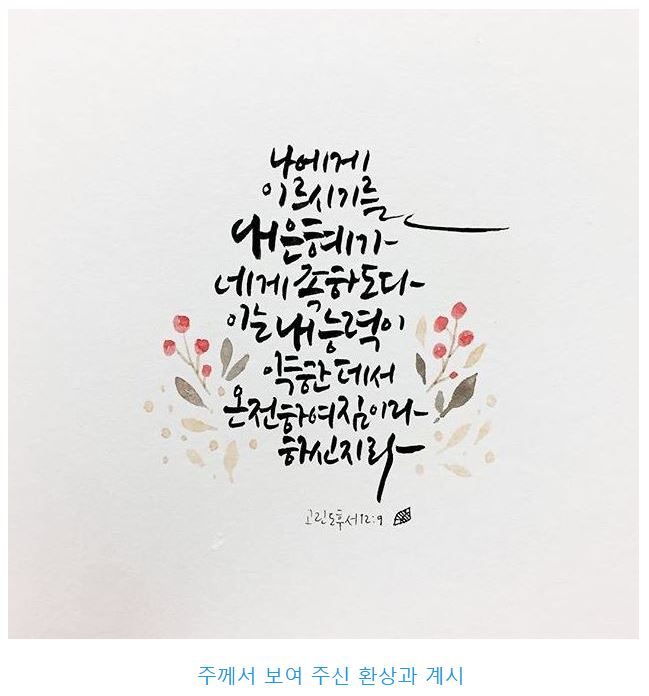 나에게
이르시기를
내 은혜가
네게 족하도다
이는 내 능력이
약한 데서
온전하여짐이라
하신지라
고린도후서 12:9
주께서 보여 주신 환상과 계시